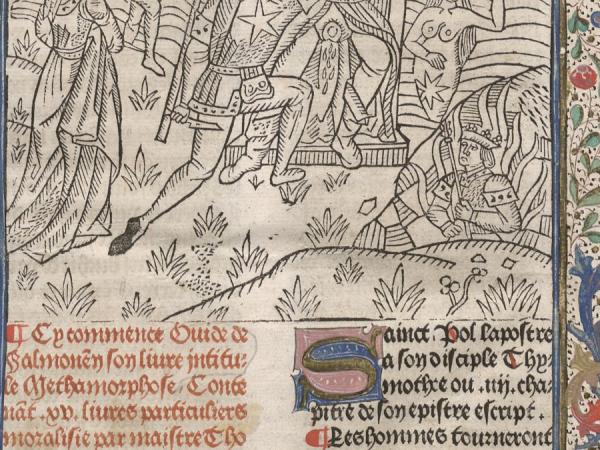 ¶ Cy commence Ouide de
Salmonēn son liure intitu-
le Methamorphose. Conte
nāt .xv. liures particuliers
moralisie par maistre Tho
Sainct Pol lapostre
a son disciple Thy
mothee ou .iiij. cha-
pitre de son epistre escript.
¶ Les hommes tourneront